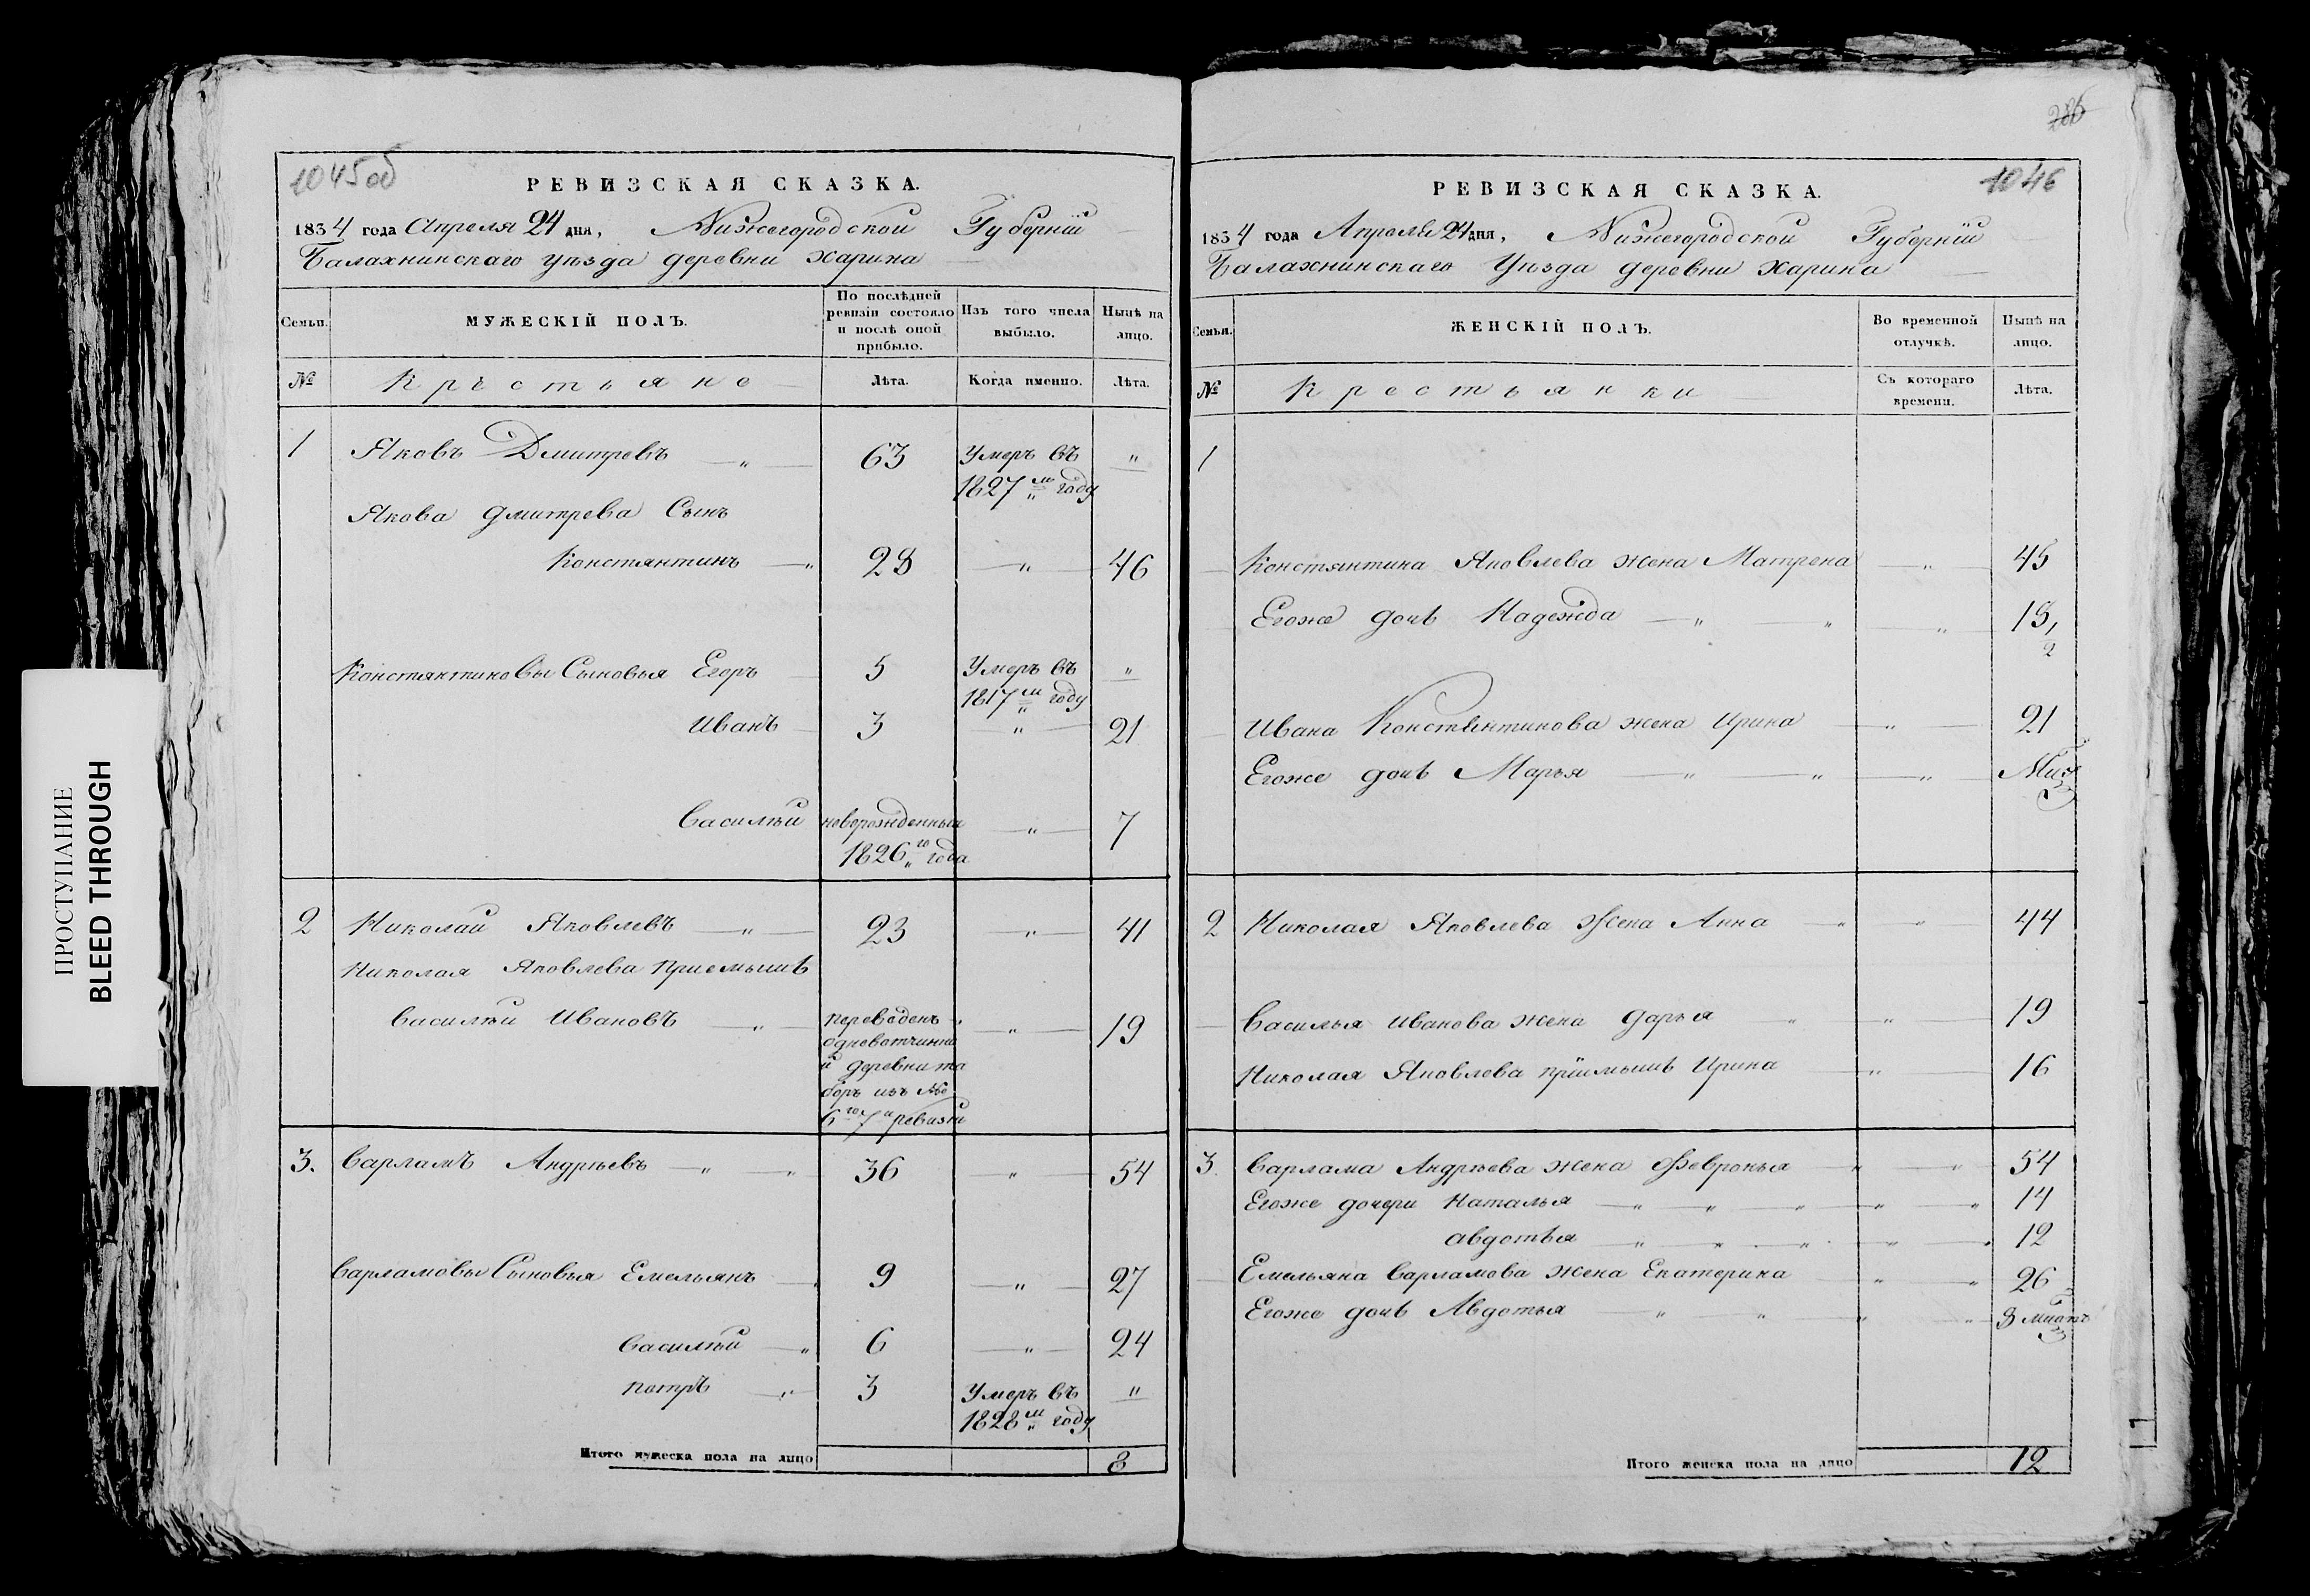 286
1045об
РЕВИЗСКАЯ СКАЗКА.
1834 года Апреля 24 дня, Нижегородской Губерніи
Балахнинскаго уѣзда деревни Харина
Семьи. МУЖЕСКІЙ ПОЛЪ. По послѣдней ревизіи состояло и послѣ оной прибыло. Изъ того числа выбыло. Нынѣ на лицо.
№ Крѣстьяне Лѣта. Когда именно. Лѣта.
1 Яковъ Дмитревъ 63 Умеръ въ 1827м году "
Якова Дмитрева Сынъ
Констянтинъ 28 " 46
Констянтиновы Сыновья Егоръ 5 Умеръ въ 1817м году "
Иванъ 3 " 21
Василѣй новорожденный 1826го года " 7
2 Николай Яковлевъ 23 " 41
Николая Яковлева приемышъ
Василѣй Ивановъ переведенъ " 19
одновотчинно
й деревни та
боръ изъ №
6го 7й ревизіи
3. Варламъ Андрѣевъ 36 " 54
Варламовы Сыновья Емельянъ 9 " 27
Василѣй 6 " 24
петръ 3 Умеръ въ 1828м году "
Итого мужеска пола на лицо 8
1046
РЕВИЗСКАЯ СКАЗКА.
1834 года Апреля 24 дня, Нижегородской Губерніи
Балахнинскаго Уѣзда деревни Харина
Семьи. ЖЕНСКІЙ ПОЛЪ. Во временной отлучкѣ. Нынѣ на лицо.
№ Крестьянки Съ котораго времени. Лѣта.
1
Констянтина Яковлева жена Матрена " 45
Егоже дочь Надежда " 15,
2
Ивана Констянтинова жена Ирина " 21
Егоже дочь Марья "
2 Николая Яковлева Жена Анна " 44
Василья Иванова жена Дарья " 19
Николая Яковлева пріимышъ Ирина " 16
3. Варлама Андрѣева жена Февронья " 54
Егоже дочери Наталья " 14
авдотья " 12
Емельяна Варламова жена Екатерина " 26
Егоже дочь Авдотья " 3
Итого женска пола на лицо 12
ПРОСТУПАНИЕ
BLEED THROUGH